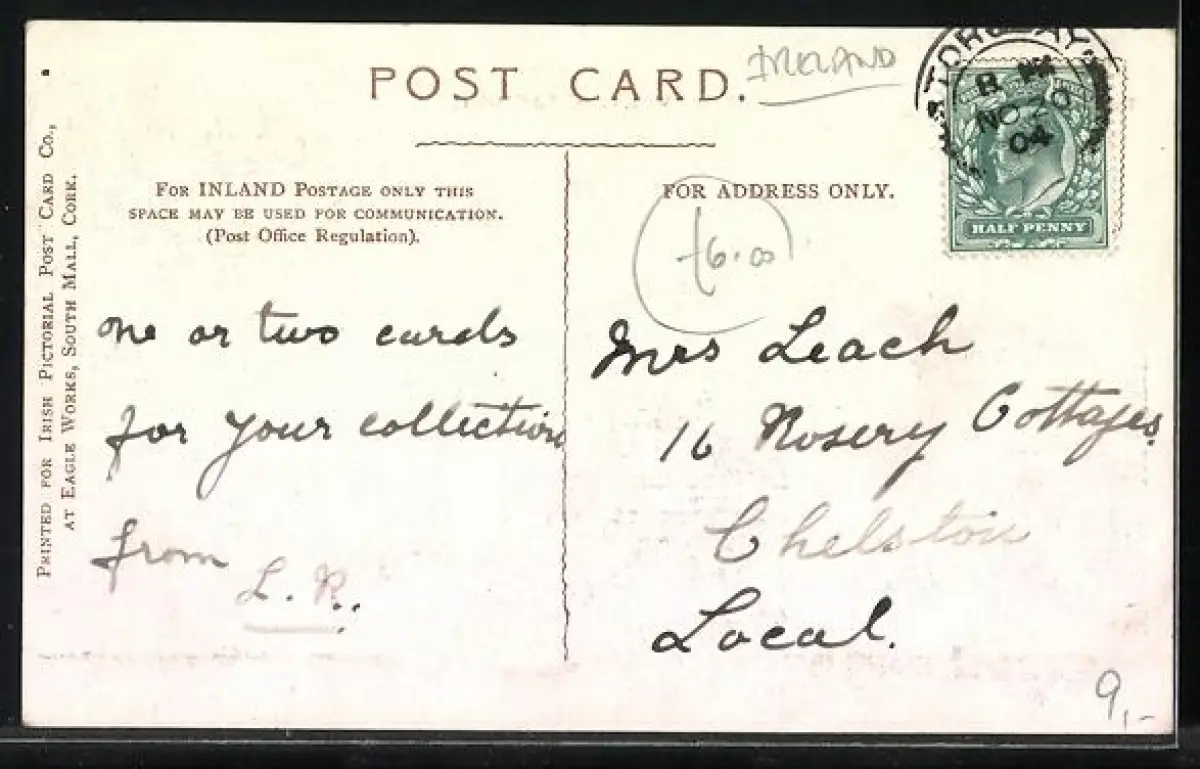 POST CARD.
IRELAND
TORQUAY
8 PM
NO 20
04
HALF PENNY
FOR INLAND POSTAGE ONLY THIS
SPACE MAY BE USED FOR COMMUNICATION.
(Post Office Regulation).
FOR ADDRESS ONLY.
PRINTED FOR IRISH PICTORIAL POST CARD CO.,
AT EAGLE WORKS, SOUTH MALL, CORK.
6.00
one or two cards
for your collection
from
L. R.
Mrs Leach
16 Rosery Cottages.
Chelston
Local.
9,-